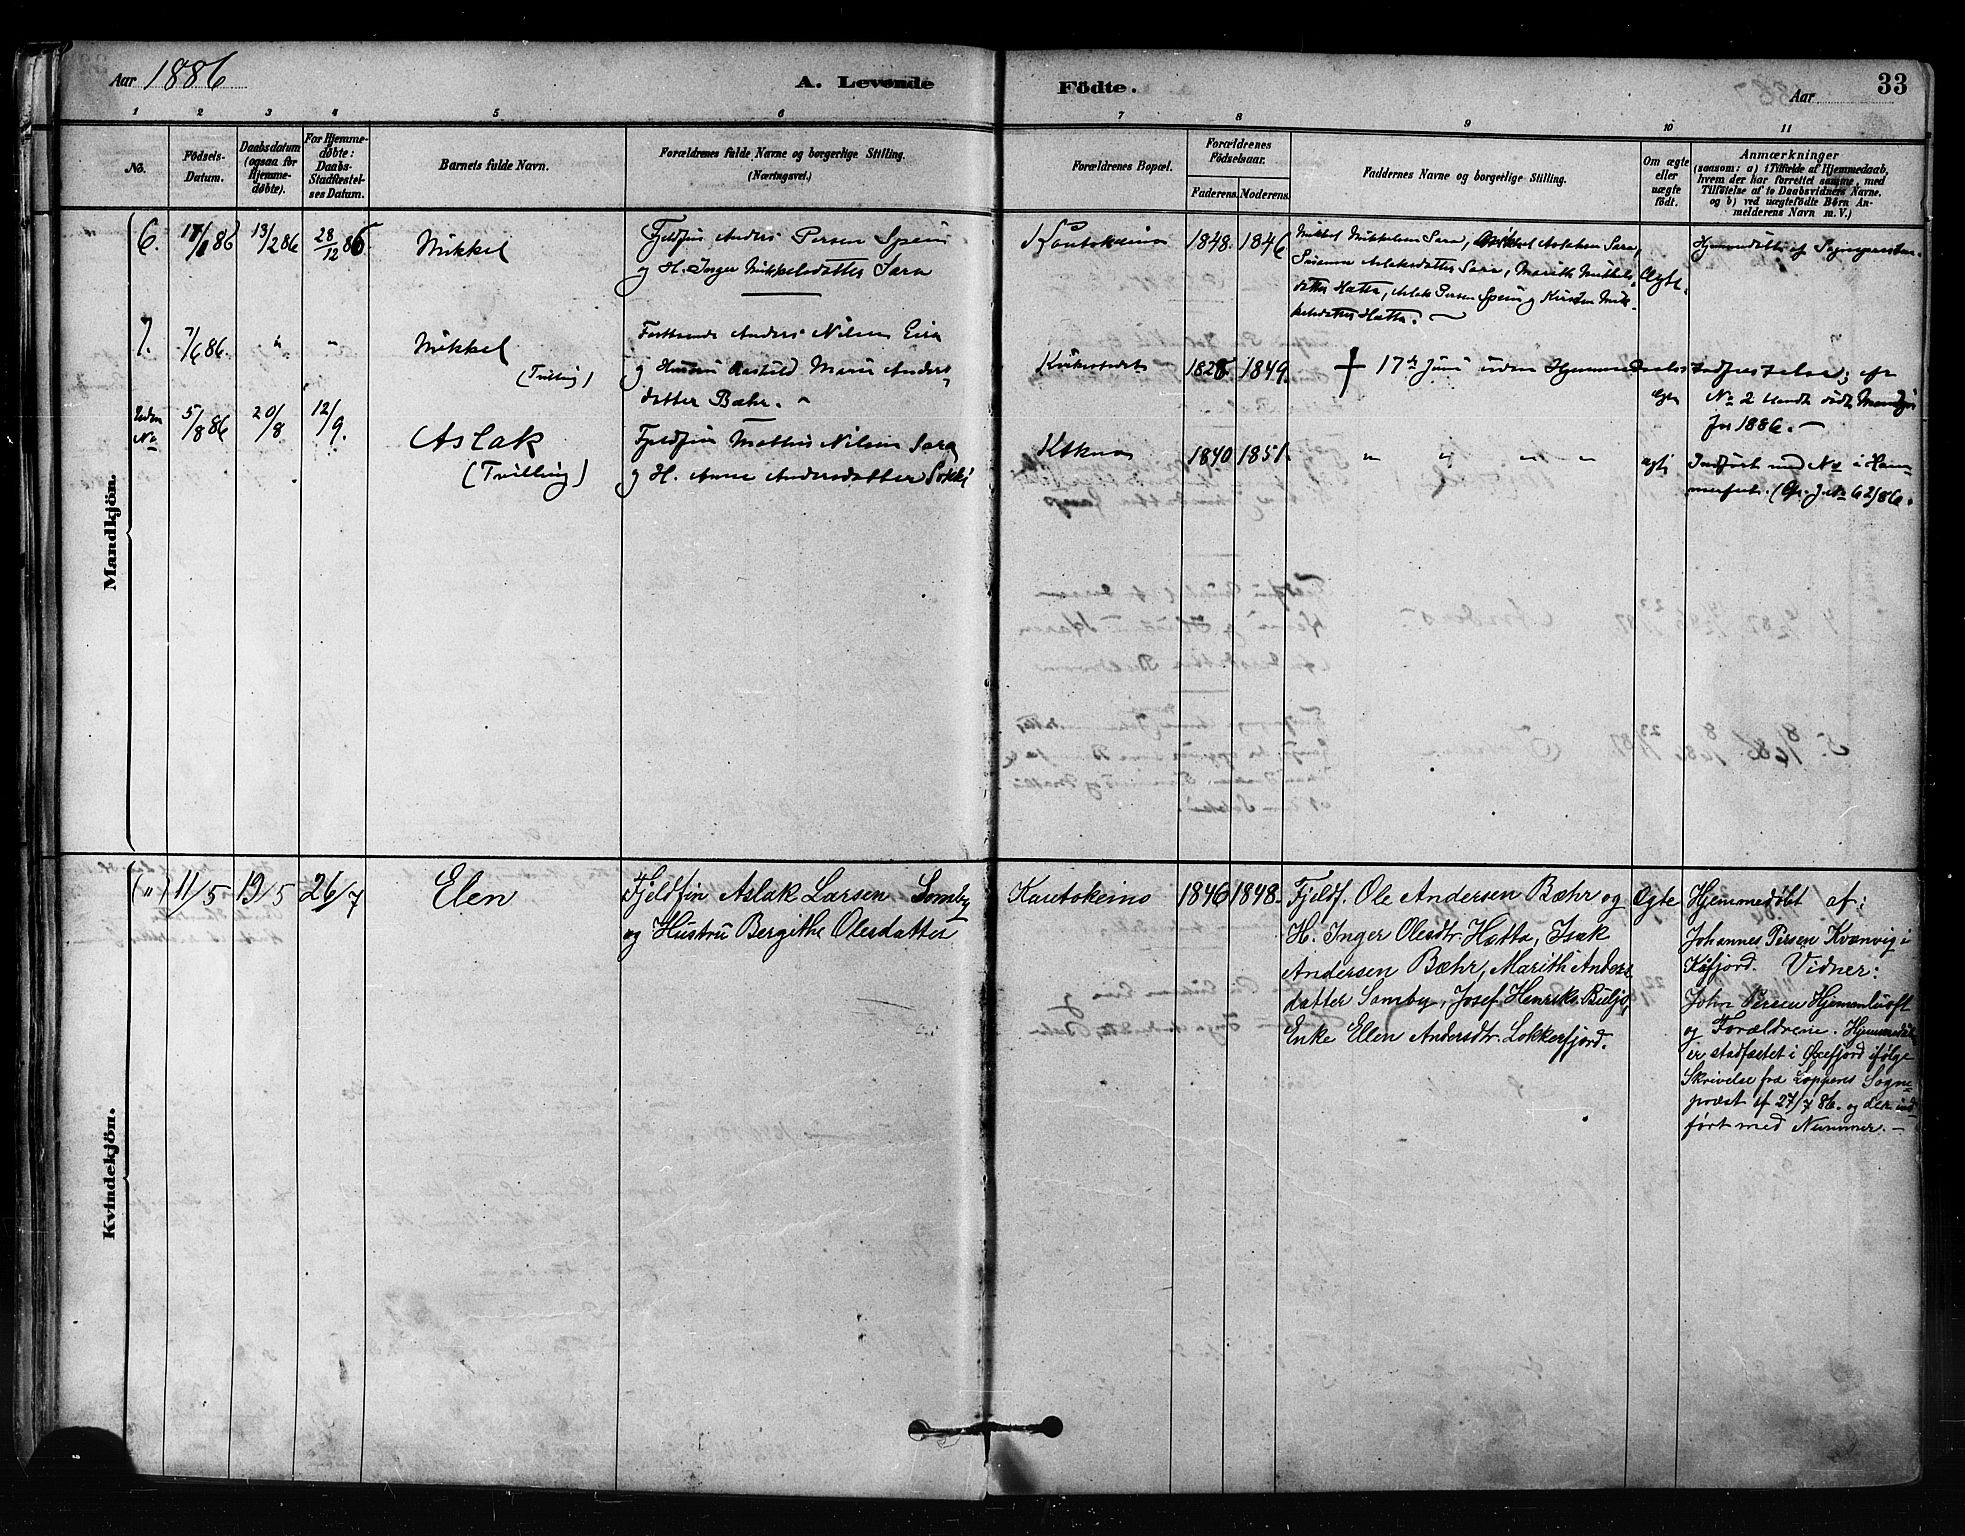 Aar 1886
A. Levende Födte.
Aar
33
1 2 3 4 5 6 7 8 9 10 11
No.
Födsels-Datum.
Daabsdatum (ogsaa for Hjemme-døbte).
For Hjemme-døbte: Daabs-Stadfæstel-ses Datum.
Barnets fulde Navn.
Forældrenes fulde Navne og borgerlige Stilling.
(Næringsvei.)
Forældrenes Bopæl.
Forældrenes Födselsaar.
Faderens. Moderens.
Faddernes Navne og borgerlige Stilling.
Om ægte eller uægte födt.
Anmærkninger
(saasom: a) i Tilfælde af Hjemmedaab,
hvem der har forrettet samme, med
Tilföielse af to Daabsvidners Navne,
og b) ved uægtefödte Börn An-
melderens Navn m. V.)
Mandkjön.
6. 86 13/2 86 28/12 86 Mikkel
Fjeldfin Anders Persen Spein
og H. Inger Mikkelsdatter Sara
Kautokeino 1848. 1846
Mikkel Mikkelsen Sara, Aslaksen Sara,
Susanna Aslaksdatter Sara, Marith Mikkels
datter Hætta, Aslak Persen Spein og Kirsten Mik
kelsdatter Hætta.
Ægte.
Hjemmedøbt af Sognepræsten.
7. 7/6 86. " " Mikkel
(Tvilling)
Anders Nilsen Eira
og Hustru Marie Anders
datter Bæhr.
1849.
† 17de Juni uden Hjemmedaabs stadfæstelse; cfr
No 2
Jnr 1886.
Ægte
Uden No 5/8 86 20/8 12/9. Aslak
(Tvilling)
Fjeldfin Mathis Nilsen Sara
og H. Anne Andersdatter Sokki
1840 1851.
" " " "
Ægte
Indført med No i Ham-
merfest. (Cfr. J. No 62/86.
Kvindekjön.
(") 11/5 19/5 26/7 Elen
Fjeldfin Aslak Larsen Somby
og Hustru Bergithe Olesdatter
Kautokeino 1846 1848.
Fjeldf. Ole Andersen Bæhr og
H. Inger Olesdtr. Hætta, Isak
Andersen Bæhr, Marith Anders
datter Somby, Josef Henriks. Buljo,
Enke Ellen Andersdtr. Lokkerfjord.
Ægte
Hjemmedøbt af:
Johannes Persen Kvænvig i
Kåfjord. Vidner:
John Persen Hjemenluoft
og Forældrene. Hjemmedåb
er stadfæstet i Øxefjord ifølge
Skrivelse fra Loppens Sogne-
præst af 27/7 86. og der ind
ført med Nummer. -